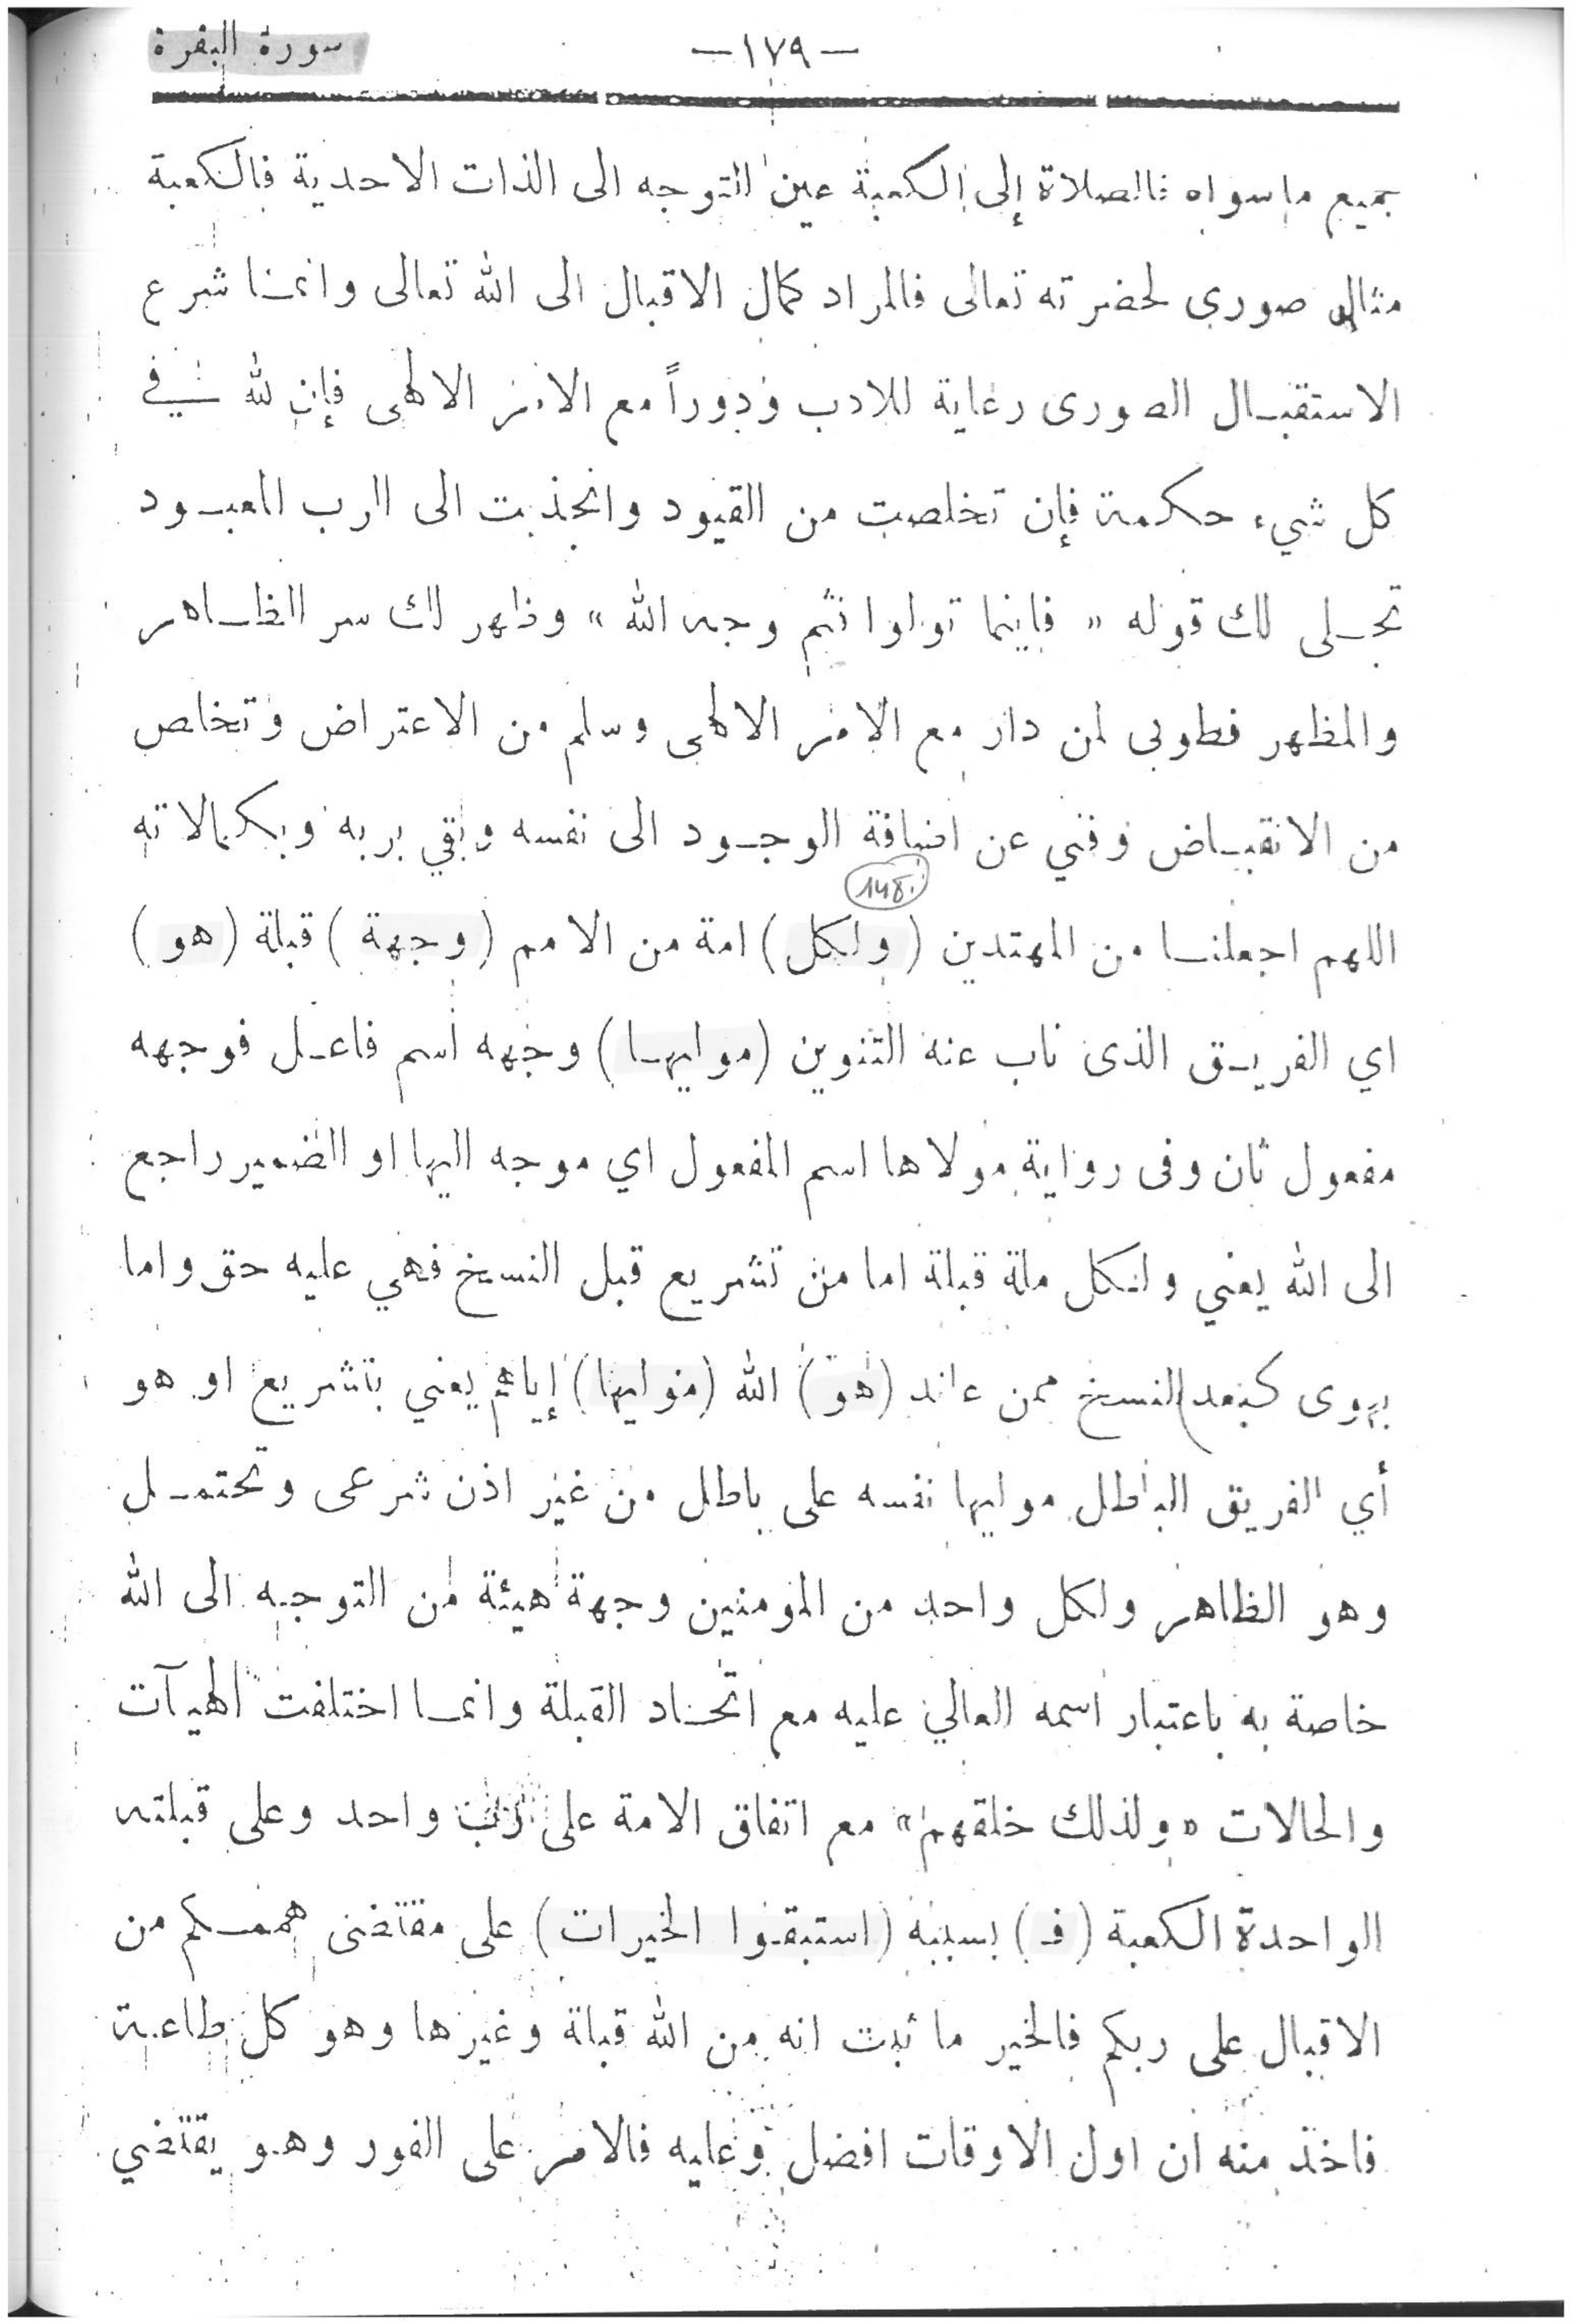 سورة البقرة
— ١٧٩ —
جميع ماسواه فالصلاة إلى الكعبة عين التوجه الى الذات الاحدية فالكعبة
مثال صوري لحضرته تعالى فالمراد كمال الاقبال الى الله تعالى وانمــا شرع
الاستقبــال الصورى رعاية للادب ودوراً مع الامر الالهى فإن لله ســفي
كل شيء حكمة فإن تخلصت من القيود وانجذبت الى الرب المعبــود
تجــلى لك قوله « فاينما تولوا فثم وجه الله » وظهر لك سر الظــاهر
والمظهر فطوبى لمن دار مع الامر الالهى وسلم من الاعتراض وتخلص
من الانقبــاض وفني عن اضافة الوجــود الى نفسه وبقي بربه وبكمالاته
148
اللهم اجعلنــا من المهتدين (ولكل) امة من الامم (وجهة) قبلة (هو)
اي الفريــق الذى ناب عنه التنوين (موليهــا) وجهه اسم فاعــل فوجهه
مفعول ثان وفى رواية مولاها اسم المفعول اي موجه اليها او الضمير راجع
الى الله يعني ولكل ملة قبلة اما من تشريع قبل النسخ فهي عليه حق واما
بهوى كبعد النسخ ممن عاند (هو) الله (موليها) إياهم يعني بتشريع او هو
أي الفريق الباطل موليها نفسه على باطل من غير اذن شرعى وتحتمــل
وهو الظاهر ولكل واحد من المومنين وجهة هيئة من التوجه الى الله
خاصة به باعتبار اسمه العالي عليه مع اتحــاد القبلة وانمــا اختلفت الهيآت
والحالات «ولذلك خلقهم» مع اتفاق الامة على رب واحد وعلى قبلته
الواحدة الكعبة (فـ) بسببه (استبقــوا الخيرات) على مقتضى هممــكم من
الاقبال على ربكم فالخير ما ثبت انه من الله قبلة وغيرها وهو كل طاعة
فاخذ منه ان اول الاوقات افضل وعليه فالامر على الفور وهــو يقتضي